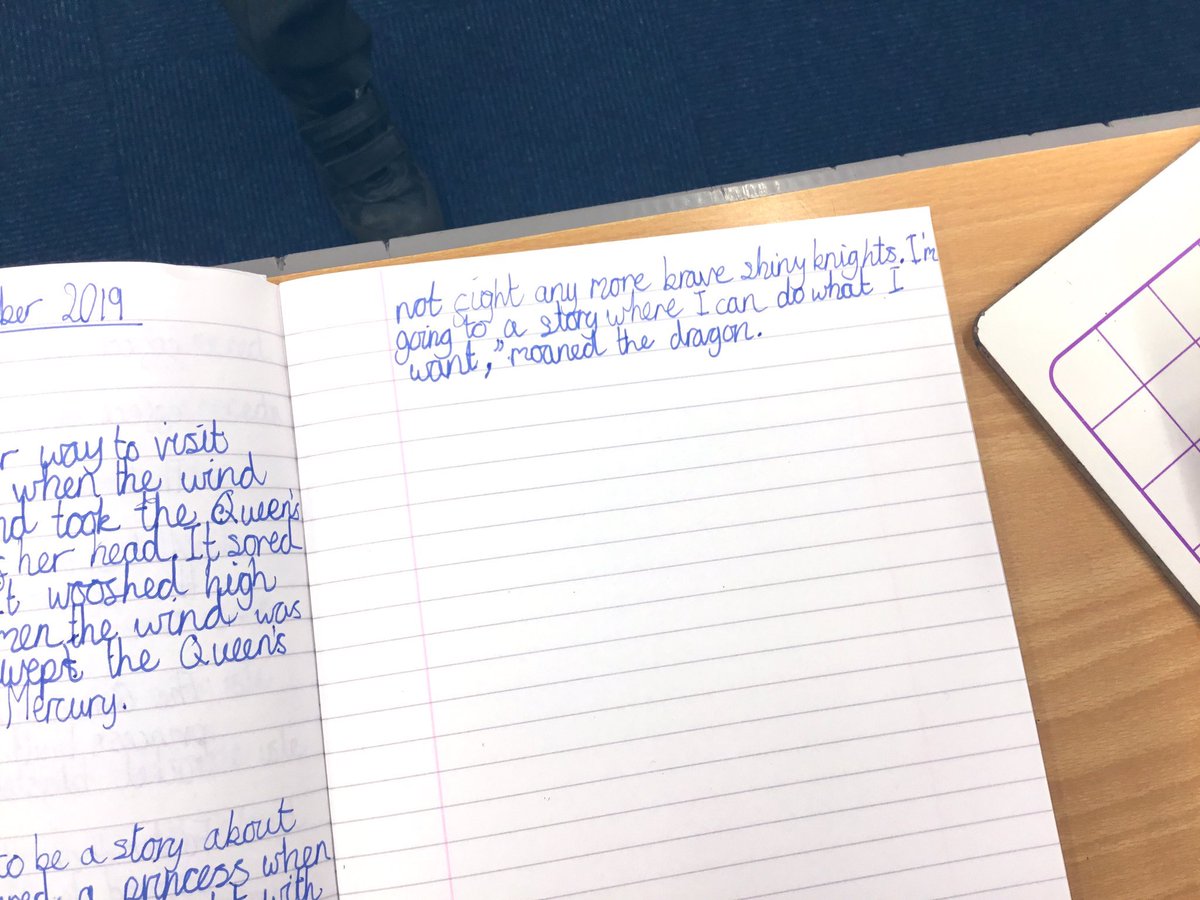 ber 2019
r way to visit
when the wind
nd took the Queen's
her head. It sored
It wooshed high
men the wind was
swept the Queen's
Mercury.
to be a story about
a princess when
with
not cight any more brave shiny knights. I'm
going to a story where I can do what I
want," moaned the dragon.